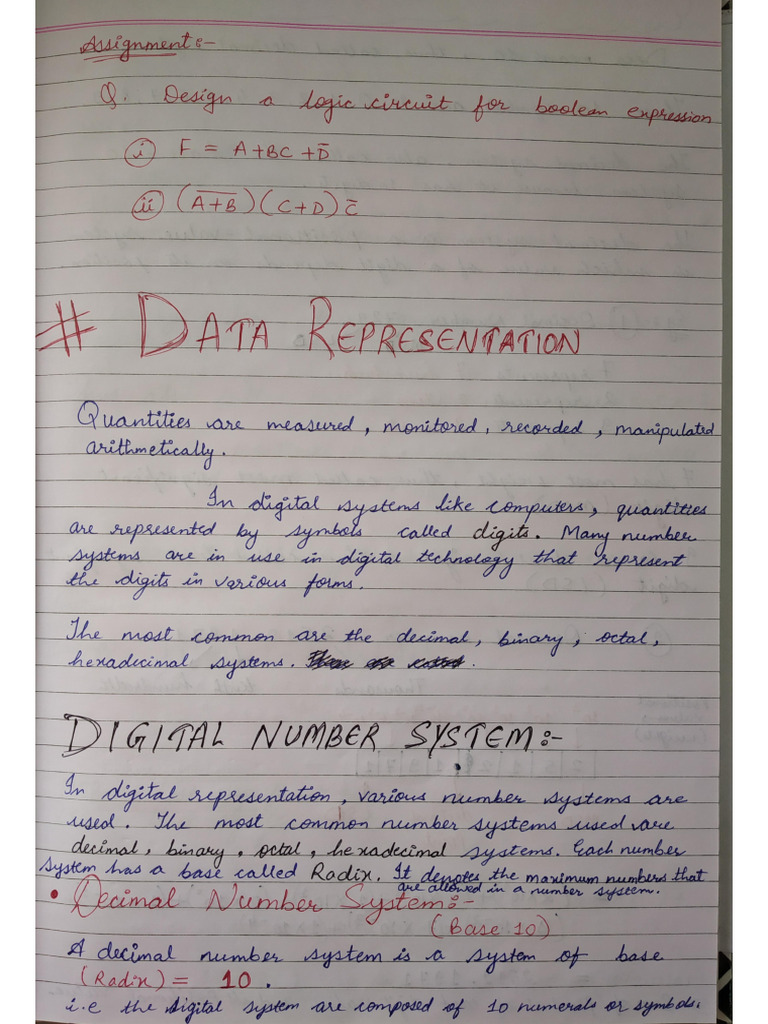 Assignment:-
Q. Design a logic circuit for boolean expression
(i) F = A+BC+D̅
(ii) (A̅+̅B̅)(C+D)C̅
# DATA REPRESENTATION
Quantities are measured, monitored, recorded, manipulated
arithmetically.
In digital systems like computers, quantities
are represented by symbols called digits. Many number
systems are in use in digital technology that represent
the digits in various forms.
The most common are the decimal, binary, octal,
hexadecimal systems.
DIGITAL NUMBER SYSTEM:-
In digital representation, various number systems are
used. The most common number systems used are
decimal, binary, octal, hexadecimal systems. Each number
system has a base called Radix. It denotes the maximum numbers that
are allowed in a number system.
• Decimal Number System:-
(Base 10)
A decimal number system is a system of base
(Radix) = 10.
i.e the digital system are composed of 10 numerals or symbols.